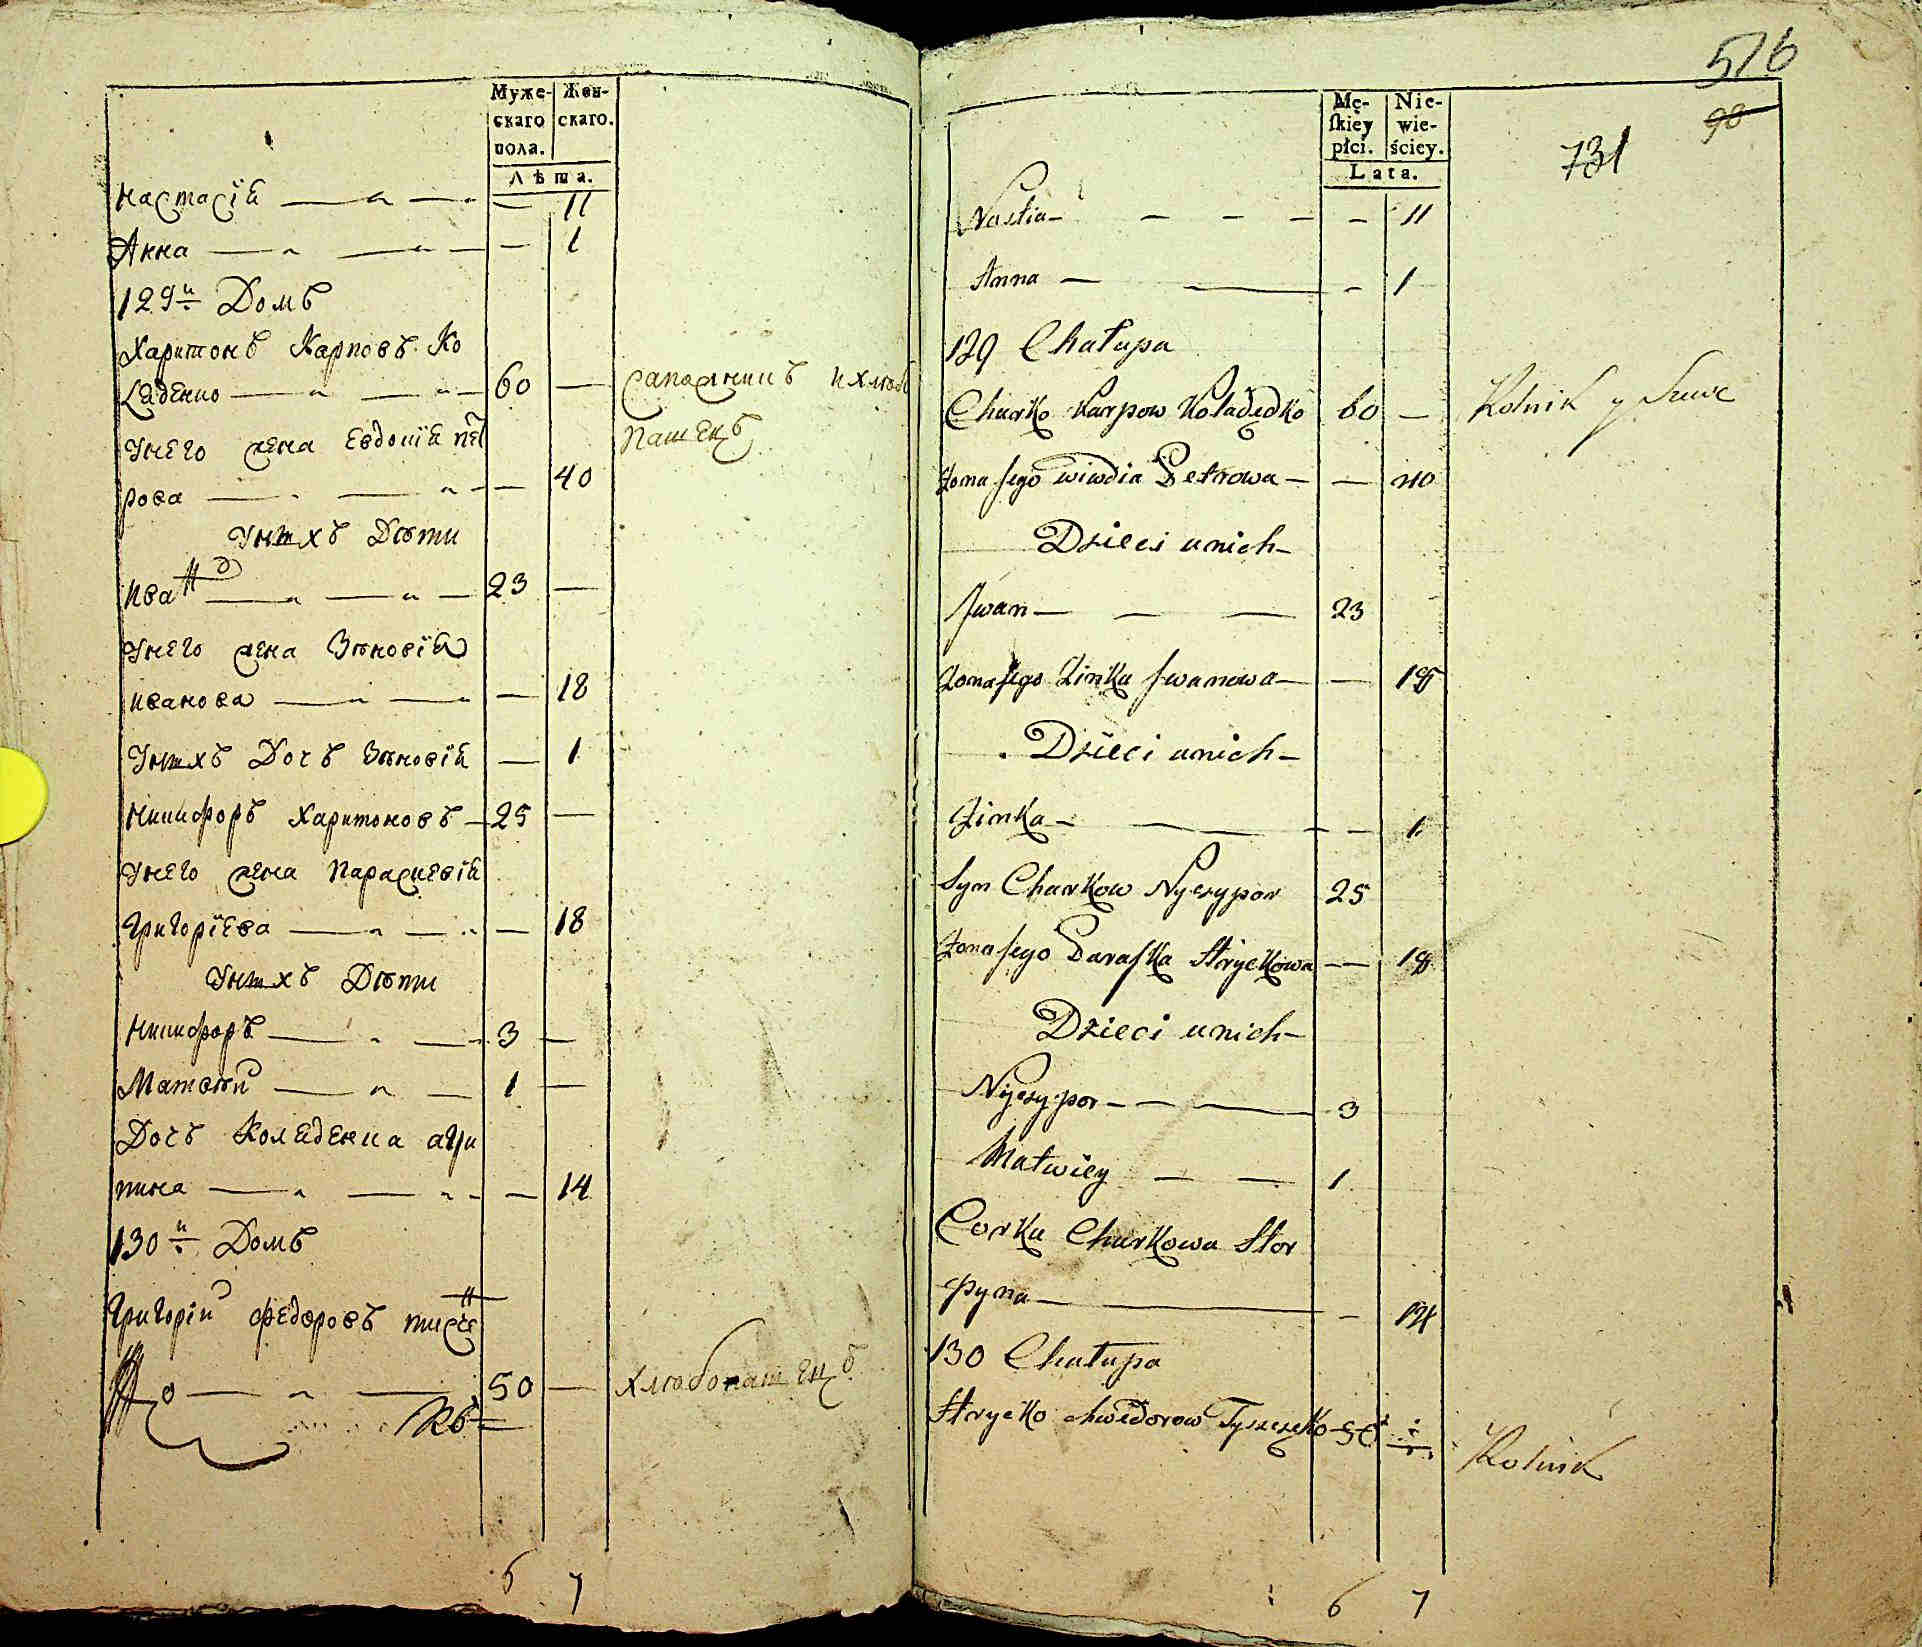 Муже-
скаго
пола.
Жен-
скаго.
Лѣта.
Настасїя — — — 11
Анна — — — 1
129й Домъ
Харитонъ Карповъ Ко
ляденко — — 60 — Сапожникъ и хлѣбо
пашецъ
У него жена Евдокїя Пет
рова — — — 40
У нихъ Дѣти
Иванъ — — 23 —
У него жена Зѣновїя
Иванова — — — 18
У нихъ Дочъ Зѣновїя — 1
Никифоръ Харитоновъ — 25 —
У него жена Параскевїя
Григорїева — — — 18
У нихъ Дѣти
Никифоръ — — 3 —
Матвѣй — — 1 —
Дочъ Коляденка Агри
пина — — — 14
130й Домъ
Григорій Федоровъ
50 — хлѣбопашецъ
6 7
516
98
731
Mę-
skiey
płci.
Nie-
wie-
ściey.
Lata.
Nastia — — — — 11
Anna — — — 1
129 Chałupa
Charko Karpow Koladędko 60 — Rolnik y Szwc
Zona Jego Wiwdia Petrowa — — 40
Dzieci unich —
Jwan — — — 23
Zona Jego Zinka Jwanowa — — 18
Dzieci unich —
Zinka — — — — 1
Syn Charkow Nyczypor 25
Zona Jego Paraska Hryckowa — 18
Dzieci unich —
Nyczypor — — — 3
Matwiey — — 1
Corka Charkowa Hor
pyna — — — 14
130 Chałupa
Hrycko Chwedorow Tyszczeko — 50
Rolnik
6 7